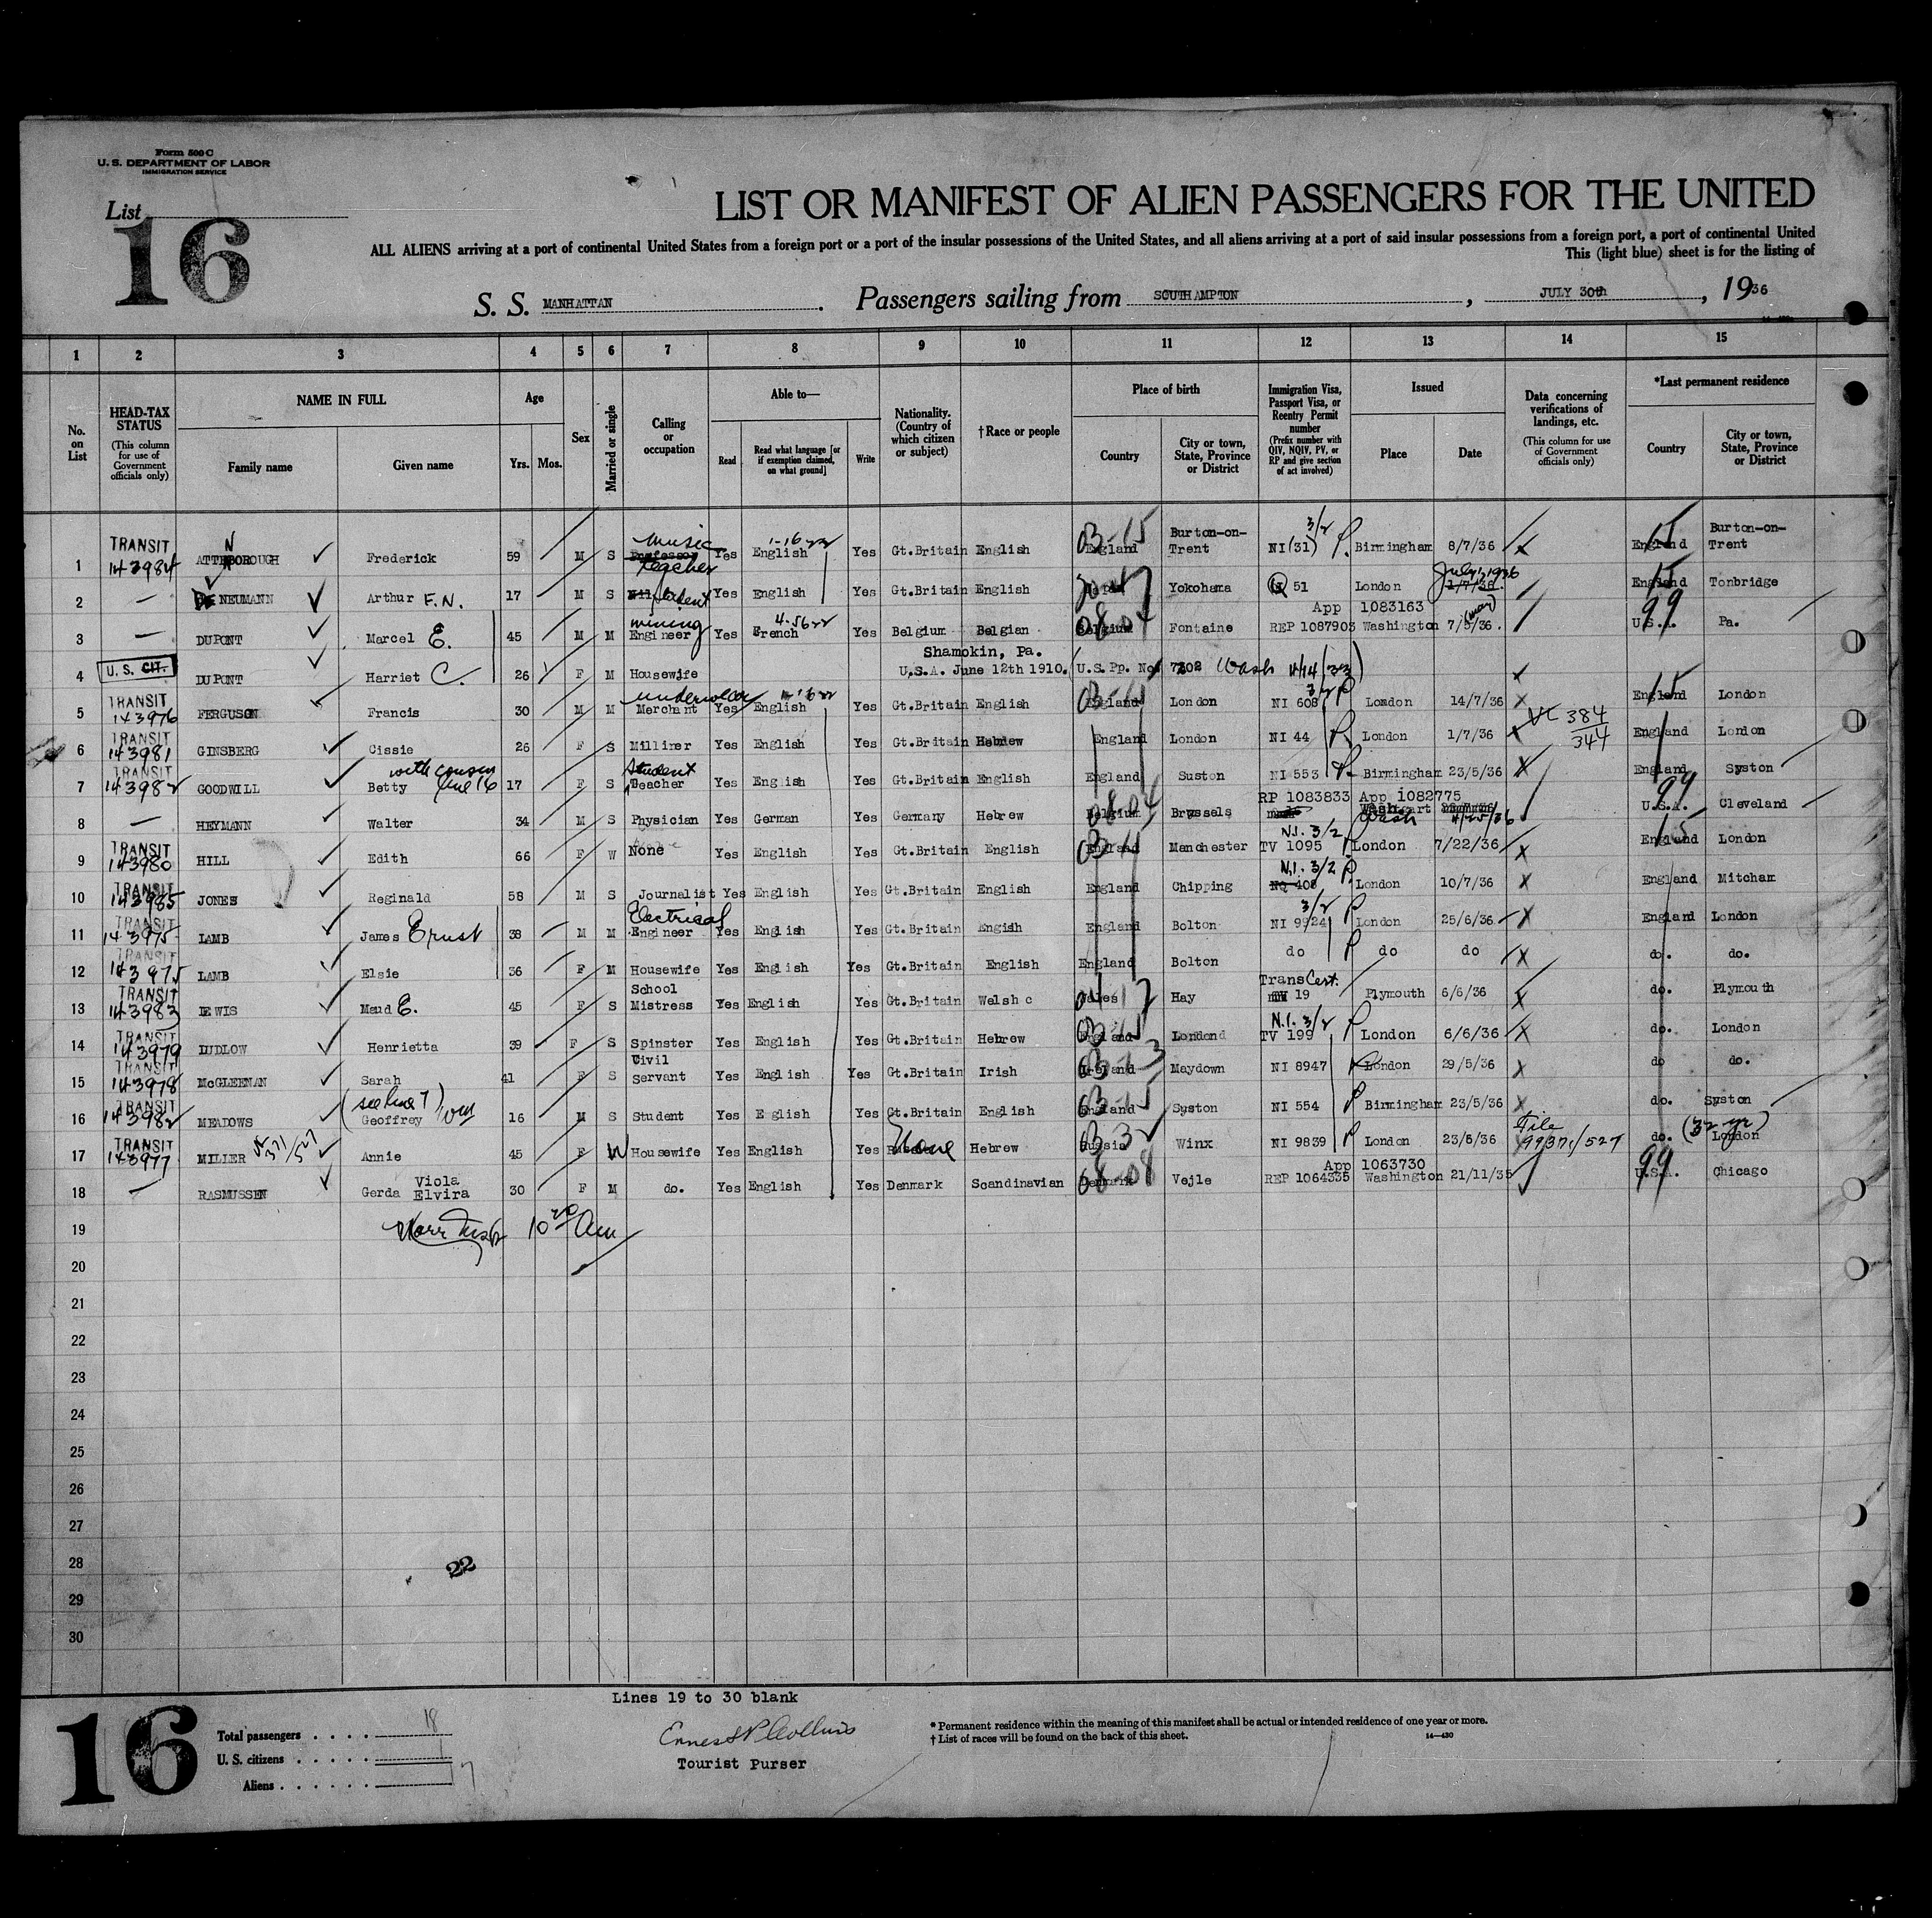 Form 500 C
U. S. DEPARTMENT OF LABOR
IMMIGRATION SERVICE
List
16
LIST OR MANIFEST OF ALIEN PASSENGERS FOR THE UNITED
ALL ALIENS arriving at a port of continental United States from a foreign port or a port of the insular possessions of the United States, and all aliens arriving at a port of said insular possessions from a foreign port, a port of continental United
This (light blue) sheet is for the listing of
S. S. MANHATTAN. Passengers sailing from SOUTHAMPTON, JULY 30th, 1936
1 2 3 4 5 6 7 8 9 10 11 12 13 14 15
No. on List
HEAD-TAX STATUS (This column for use of Government officials only)
NAME IN FULL
Family name
Given name
Age
Yrs. Mos.
Sex
Married or single
Calling or occupation
Able to—
Read
Read what language [or if exemption claimed, on what ground]
Write
Nationality. (Country of which citizen or subject)
†Race or people
Place of birth
Country
City or town, State, Province or District
Immigration Visa, Passport Visa, or Reentry Permit number (Prefix number with QIV, NQIV, PV, or RP and give section of act involved)
Issued
Place
Date
Data concerning verifications of landings, etc. (This column for use of Government officials only)
*Last permanent residence
Country
City or town, State, Province or District
1 TRANSIT 143984 ATTENBOROUGH Frederick 59 M S music Professor teacher Yes English 1-16 Yes Gt.Britain English England 03-15 Burton-on-Trent NI (31) 3/2 P. Birmingham 8/7/36 England 15 Burton-on-Trent
2 — De NEUMANN Arthur F.N. 17 M S Student Yes English Yes Gt.Britain English Yokohama 51 London July 1, 1936 England 15 Tonbridge
3 — DUPONT Marcel E. 45 M M mining Engineer Yes French 4-56 Yes Belgium Belgian Belgium 08-04 Fontaine App 1083163 REP 1087903 Washington 7/5/36. (may) U.S.A. 99 Pa.
4 U. S. CIT. DUPONT Harriet C. 26 F M Housewife Shamokin, Pa. U.S.A. June 12th 1910. U.S. Pp. No 7202 Wash 4/14/33
5 TRANSIT 143976 FERGUSON Francis 30 M M underwear Merchant Yes English 1-16 Yes Gt.Britain English England 03-15 London NI 608 3/2 P London 14/7/36 England 15 London
6 TRANSIT 143981 GINSBERG Cissie 26 F S Milliner Yes English Yes Gt.Britain Hebrew England London NI 44 P London 1/7/36 VC 384/344 England London
7 TRANSIT 143982 GOODWILL with cousin Betty line 16 17 F S Student Teacher Yes English Yes Gt.Britain English England Suston NI 553 P Birmingham 23/5/36 England Syston
8 — HEYMANN Walter 34 M S Physician Yes German Yes Germany Hebrew Belgium 08-04 Brussels RP 1083833 App 1082775 Wash 4/25/36 U.S.A. 99 Cleveland
9 TRANSIT 143980 HILL Edith 66 F W None Yes English Yes Gt.Britain English England 03-15 Manchester N.I. 3/2 TV 1095 London 7/22/36 England 15 London
10 TRANSIT 143985 JONES Reginald 58 M S Journalist Yes English Yes Gt.Britain English England Chipping N.I. 3/2 P NQ 408 London 10/7/36 England Mitcham
11 TRANSIT 143975 LAMB James Ernest 38 M M Electrical Engineer Yes English Yes Gt.Britain Engish England Bolton 3/2 NI 9924 P London 25/6/36 England London
12 TRANSIT 143975 LAMB Elsie 36 F M Housewife Yes English Yes Gt.Britain English England Bolton do P do do do. do.
13 TRANSIT 143983 LEWIS Maud E. 45 F S School Mistress Yes English Yes Gt.Britain Welsh c Wales Hay Trans Cert. 19 Plymouth 6/6/36 do. Plymouth
14 TRANSIT 143979 LUDLOW Henrietta 39 F S Spinster Yes English Yes Gt.Britain Hebrew England 03-15 London N.I. 3/2 P TV 199 London 6/6/36 do. London
15 TRANSIT 143978 McGLEENAN Sarah 41 F S Civil servant Yes English Yes Gt.Britain Irish Ireland Maydown NI 8947 London 29/5/36 do do.
16 TRANSIT 143982 MEADOWS (see line 7) Geoffrey 16 M S Student Yes English Yes Gt.Britain English England 03-15 Syston NI 554 P Birmingham 23/5/36 do. Syston
17 TRANSIT 143977 MILLER Annie 45 F W Housewife Yes English Yes None Hebrew Russia 03 32 Winx NI 9839 P London 23/5/36 File 99371/527 do. (32 yr) London
18 — RASMUSSEN Gerda Viola Elvira 30 F M do. Yes English Yes Denmark Scandinavian Denmark 08-08 Vejle App 1063730 REP 1064335 Washington 21/11/35 U.S.A. 99 Chicago
19 10 20 Am
20
21
22
23
24
25
26
27
28
29
30
22
Lines 19 to 30 blank
16
Total passengers . . . . 18
U. S. citizens . . . . 1
Aliens . . . . . . 17
Ernest P Collins
Tourist Purser
* Permanent residence within the meaning of this manifest shall be actual or intended residence of one year or more.
† List of races will be found on the back of this sheet.
14—430